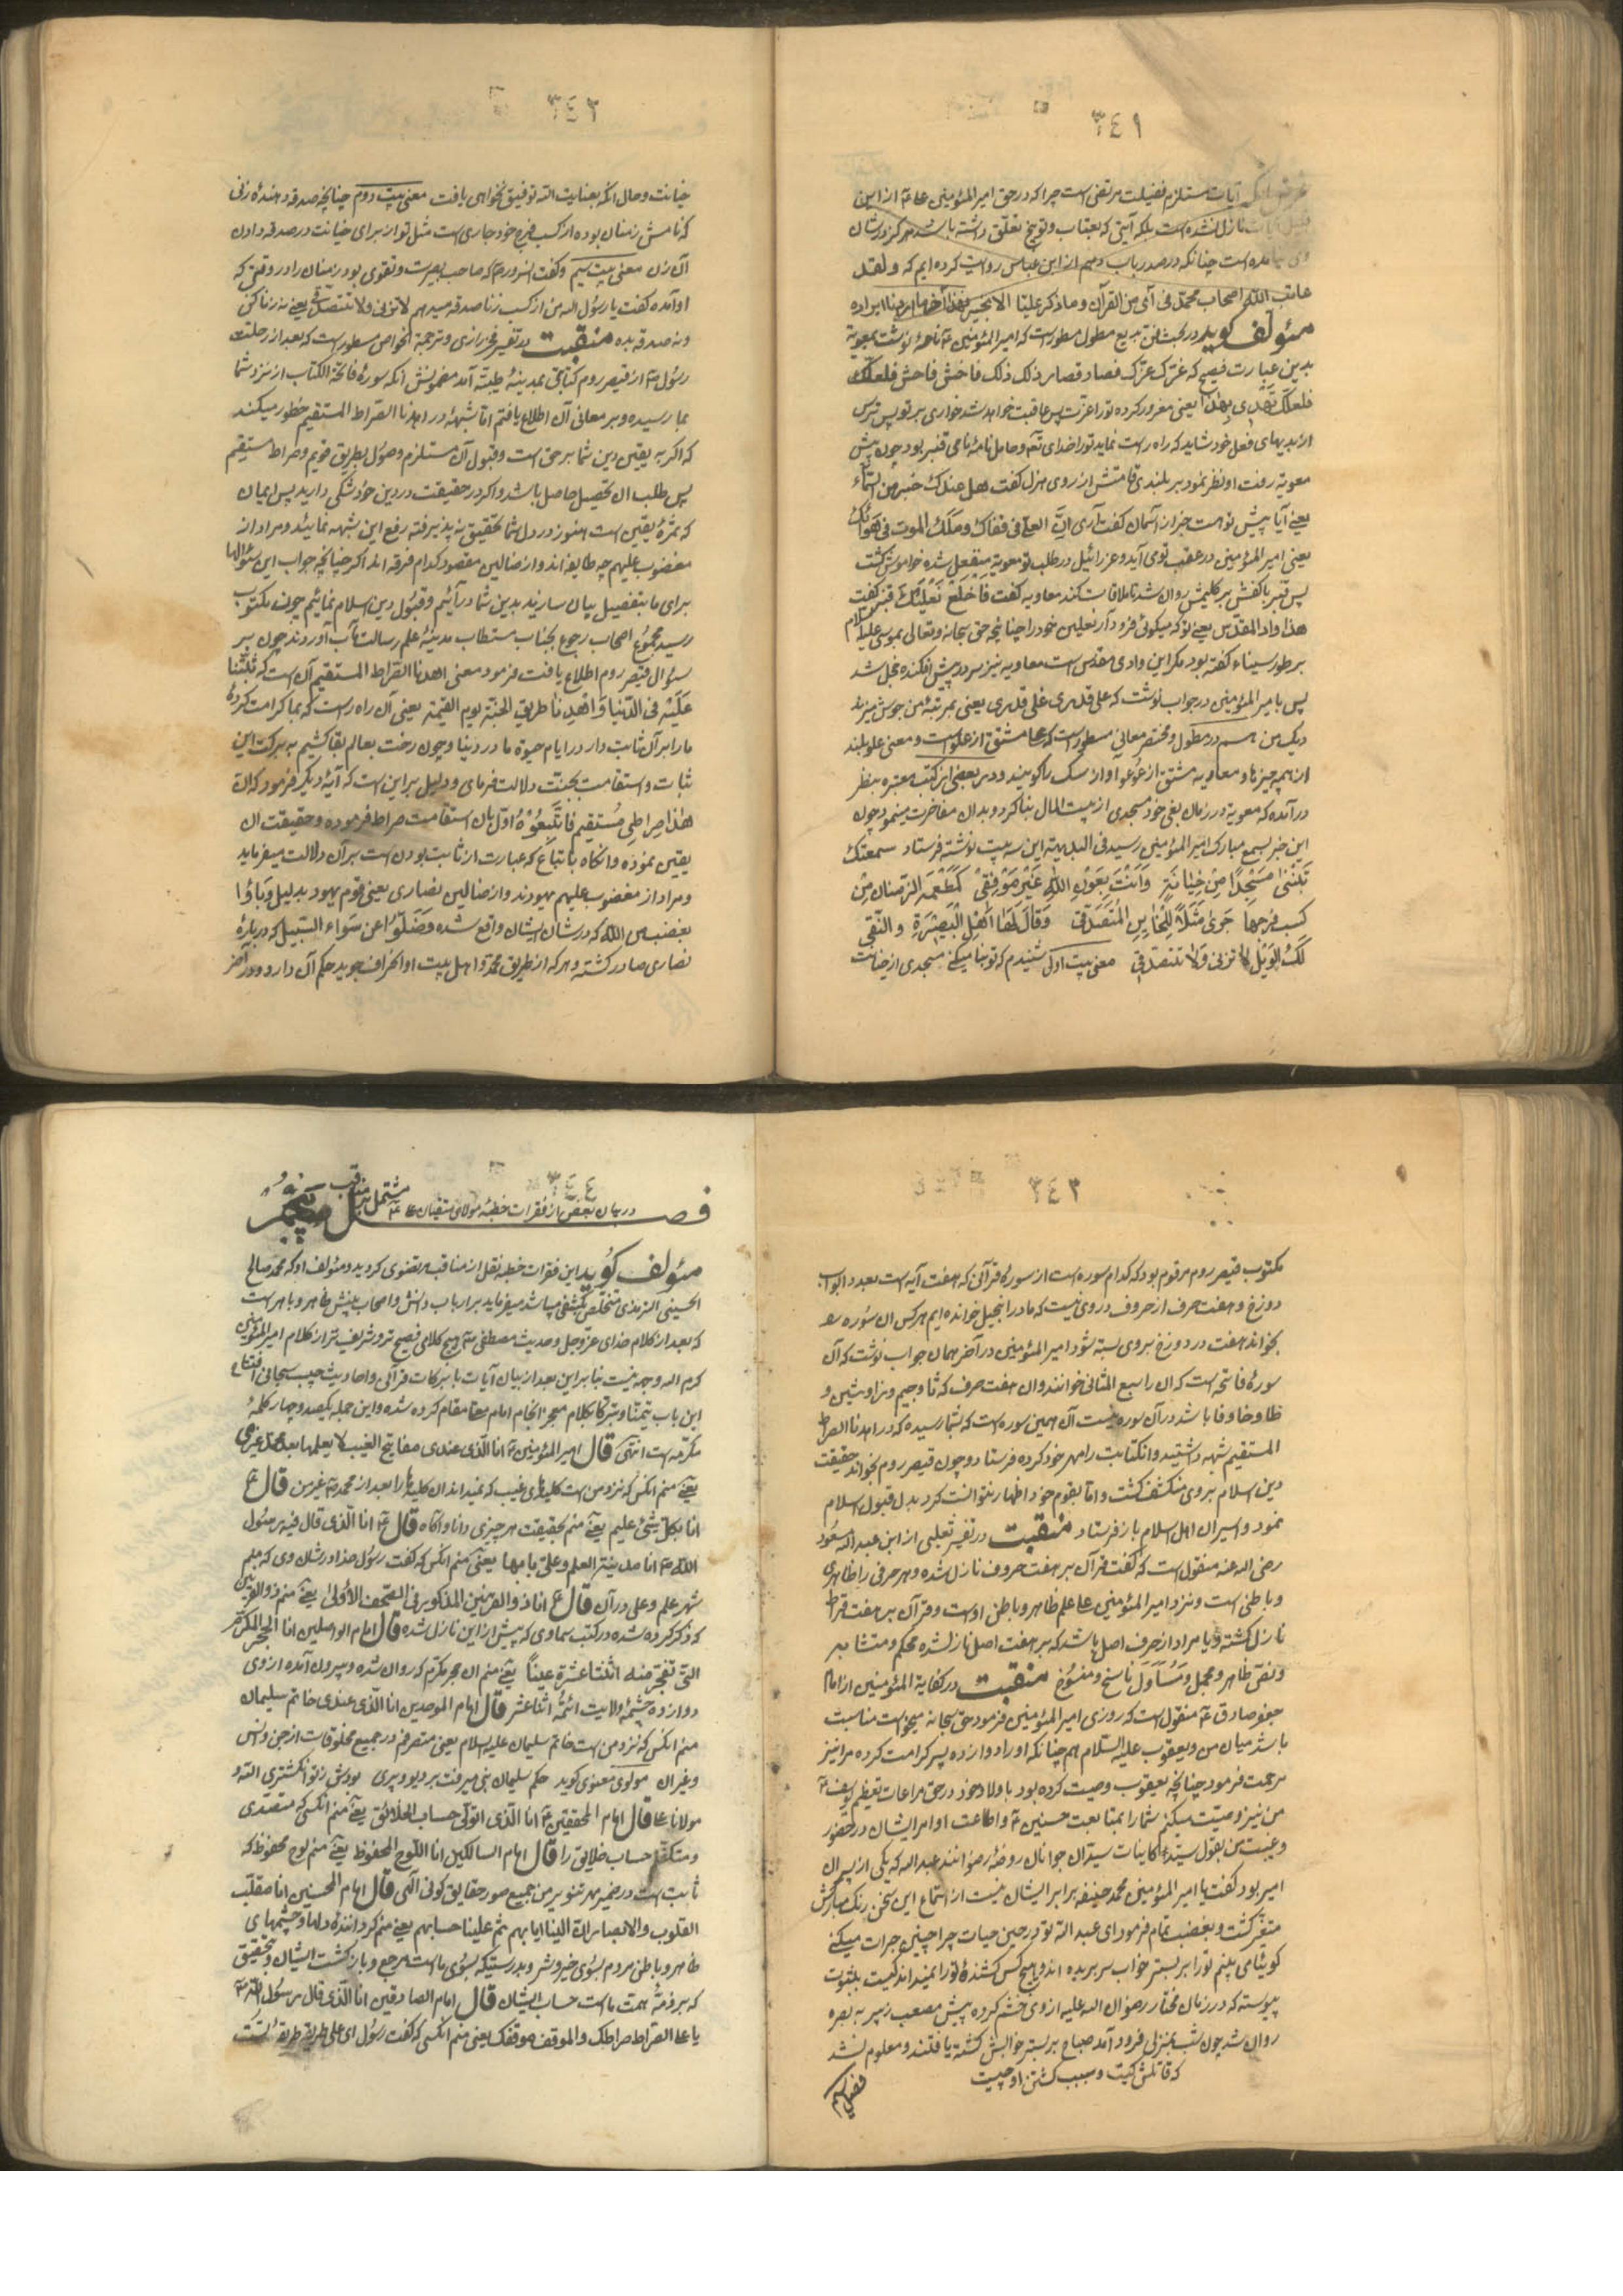 ٣٤١
آیات مستلزم فضیلت مرتضی است چرا که در حق امیر المؤمنین علی ازین
نازل نشده است بلکه آیتی که بعتاب و توبیخ تعلق داشته باشد هرگز در شان
چنانکه در صدر باب دهم از ابن عباس روایت کرده ایم که ولقد
عاتب الله اصحاب محمد فی آی من القرآن وما ذکر علیا الا بخیر
مؤلف گوید در کتب فن بدیع مطول مسطور است که امیر المؤمنین نامه نوشت بمعویه
بدین عبارت فصیح که غرّک عزّک فصار قصار ذلک ذلک فاخش فاحش فعلک
فلعلک تهدی بهذا یعنی مغرور کرده تو را عزت پس عاقبت خواهد شد خواری بر تو پس ترس
از بدیهای فعل خود شاید که راه راست نماید تو را خدای و حامل نامه نامی قنبر بود چون پیش
معویه رفت او نظر نمود بر بلندی قامتش از روی هزل گفت هل عندک خبر من السماء
یعنی آیا پیش تو هست خبر از آسمان گفت آری ان العلی فی قفاک وملک الموت فی هواک
یعنی امیر المؤمنین در عقب تو می آید و عزرائیل در طلب تو معویه منفعل شده خاموش گشت
پس قنبر با کفش بر کلیمش روان شد تا ملاقات کند معاویه گفت فاخلع نعلیک قنبر گفت
هذا واد المقدس یعنی تو که میگوئی فرود آر نعلین خود را چنانچه حق سبحانه و تعالی بموسی علیه السلام
بر طور سیناء گفته بود مگر این وادی مقدس است معاویه نیز سر در پیش افکنده خجل شد
پس با میر المؤمنین در جواب نوشت که علی قدری غلی قدری یعنی بمرتبه من جوش میزند
دیک من هم در مطول و مختصر معانی مسطور است که علی مشتق از علو است و معنی علو بلند
از همه چیزها و معاویه مشتق از عو عو آواز سک را گویند و در بعضی از کتب معتبره بنظر
در آمده که معویه در زمان بغی خود مسجدی از بیت المال بنا کرد و بدان مفاخرت مینمود چون
این خبر بسمع مبارک امیر المؤمنین رسید فی البدیهه این سه بیت نوشته فرستاد سمعتک
تبنی مسجدا من خیانة وانت بعون الله غیر موفق کمطعمة الرمان من
کسب فرجها جری مثلا للخاین المتصدق وقال لها اهل البصیرة والتقی
لک الویل لا تزنی ولا تتصدقی معنی بیت اول شنیدم که تو بنا میکنی مسجدی از خیانت
٣٤٢
خیانت و حال آنکه بعنایت الله توفیق نخواهی یافت معنی بیت دوم چنانچه صدقه دهنده زنی
که نامش رمنان بوده از کسب فرج خود جاری است مثل تو از برای خیانت در صدقه دادن
آن زن معنی بیت سیم و گفت آن سرور که صاحب بصیرت و تقوی بود رمنان را در وقتی که
او آمده گفت یا رسول الله من از کسب زنا صدقه میدهم لا تزنی ولا تتصدقی یعنی نه زنا کن
و نه صدقه بده منقبت در تفسیر فخر رازی و ترجمة الخواص مسطور است که بعد از رحلت
رسول از قیصر روم کتابتی بمدینه طیبه آمد مضمونش آنکه سوره فاتحة الکتاب از نزد شما
بما رسیده و بر معانی آن اطلاع یافتم اما شبهه در اهدنا الصراط المستقیم خطور میکند
که اگر به یقین دین شما بر حق است و قبول آن مستلزم وصول بطریق قویم و صراط مستقیم
پس طلب آن تحصیل حاصل باشد و اگر در حقیقت در دین خود شکی دارید پس ایمان
که ثمره یقین است هنوز در دل شما تحقیق نه پذیرفته رفع این شبهه نمائید و مراد از
مغضوب علیهم چه طایفه اند و از ضالین مقصود کدام فرقه اند اگر چنانچه جواب این سئوالها
برای ما بتفصیل بیان سازند بدین شما در آئیم و قبول دین اسلام نمائیم چون مکتوب
رسید مجموع اصحاب رجوع بجناب مستطاب مدینه علم رسالت مآب آوردند چون بر
سؤال قیصر روم اطلاع یافت فرمود معنی اهدنا الصراط المستقیم آن است که ثبّتنا
علیه فی الدنیا واهدنا طریق الجنة یوم القیمة یعنی آن راه راست که بما کرامت کرده
ما را بر آن ثابت دار در ایام حیوة ما در دنیا و چون رخت بعالم بقا کشیم به برکت این
ثبات و استقامت بجنت دلالت فرمای و دلیل بر این است که آیه دیگر فرمود که ان
هذا صراطی مستقیم فاتبعوه اول بان استقامت صراط فرموده و حقیقت آن
یقین نموده و آنگاه باتباع که عبارت از ثابت بودن است بر آن دلالت میفرماید
و مراد از مغضوب علیهم یهودند و از ضالین نصاری یعنی قوم یهود بدلیل وباؤا
بغضب من الله که در شان ایشان واقع شده وضلوا عن سواء السبیل که در باره
نصاری صادر گشته و هر که از طریق محمد و اهل بیت او انحراف جوید حکم آن دارد و در آخر
٣٤٣
مکتوب قیصر روم مرقوم بود که کدام سوره است از سورهای قرآنی که هفت آیه است بعدد ابواب
دوزخ و هفت حرف از حروف در وی نیست که ما در انجیل خوانده ایم هر کس آن سوره
بخواند هفت در دوزخ بر وی بسته شود امیر المؤمنین در آخر همان جواب نوشت که آن
سوره فاتحه است که آن را سبع المثانی خوانند و آن هفت حرف که ثا و جیم و زا و شین و
ظا و خا و فا باشد در آن سوره نیست آن همین سوره است که بشما رسیده که در اهدنا الصراط
المستقیم شبهه داشتید و آن کتابت را مهر خود کرده فرستاد و چون قیصر روم بخواند حقیقت
دین اسلام بر وی منکشف گشت و اما بقوم خود اظهار نتوانست کرد بدل قبول اسلام
نمود و اسیران اهل اسلام باز فرستاد منقبت در تفسیر ثعلبی از ابن عبد الله مسعود
رضی الله عنه منقول است که گفت قرآن بر هفت حروف نازل شده و هر حرفی را ظاهری
و باطنی است و نزد امیر المؤمنین علی علم ظاهر و باطن اوست و قرآن بر هفت قرائت
نازل گشته و یا مراد از حرف اصل باشد که بر هفت اصل نازل شده محکم و متشابه
و نص و ظاهر و مجمل و مأول ناسخ و منسوخ منقبت در کفایة المؤمنین از امام
جعفر صادق منقول است که روزی امیر المؤمنین فرمود حق سبحانه میخواست مناسبت
باشد میان من و یعقوب علیه السلام هم چنانکه او را دوازده پسر کرامت کرده مرا نیز
مرحمت فرمود چنانچه یعقوب وصیت کرده بود باولاد خود در حق مراعات تعظیم یوسف
من نیز وصیت میکنم شما را بمتابعت حسنین و اطاعت اوامر ایشان در حضور
و غیبت من بقول سید کاینات سیدان جوانان روضه رضوانند عبد الله که یکی از پسران
امیر بود گفت یا امیر المؤمنین محمد حنیفه برابر ایشان نیست از استماع این سخن رنک مبارکش
متغیر گشت و بغضب تمام فرمود ای عبد الله تو در حین حیات چرا چنین جرات میکنی
کوئیا می بینم تو را بر بستر خواب سر بریده اند و هیچ کس کشنده تو را نمیداند کیست بثبوت
پیوسته که در زمان مختار رضوان الله علیه از وی خشم کرده پیش مصعب زبیر به بصره
روان شد چون شب بمنزلی فرود آمد صباح بر بستر خوابش کشته یافتند و معلوم نشد
که قاتلش کیست و سبب کشتن او چیست
٣٤٤
فصل پنجم
در بیان بعضی از فقرات خطبه مولای متقیان علی مشتمل بر مناقب
مؤلف گوید این فقرات خطبه نقل از مناقب مرتضوی گردید و مؤلف او که محمد صالح
الحسینی الترمذی متخلص بکشفی میباشد میفرماید بر ارباب دانش و اصحاب بینش ظاهر و باهر است
که بعد از کلام خدای عز و جل و حدیث مصطفی هیچ کلامی فصیح تر و شریف تر از کلام امیر المؤمنین
کرم الله وجهه نیست بنا براین بعد از بیان آیات با برکات قرآنی و احادیث حبیب سبحانی افتتاح
این باب تیمنا و تبرکا بکلام معجز انجام امام مقام کرده شده و این جمله یکصد و چهار کلمه
مکرمه است انتهی قال امیر المؤمنین انا الذی عندی مفاتیح الغیب لا یعلمها بعد محمد غیری
یعنی منم آنکس که نزد من است کلیدهای غیب که نمیداند آن کلیدها را بعد از محمد غیر من قال ع
انا بکل شیئ علیم یعنی منم بحقیقت هر چیزی دانا و آگاه قال انا الذی قال فیه رسول
الله انا مدینة العلم وعلی بابها یعنی منم آنکس که گفت رسول خدا در شان وی که منم
شهر علم و علی در آن قال ع انا ذو القرنین المذکور فی الصحف الاولی یعنی منم ذو القرنین
که ذکر کرده شده در کتب سماوی که پیش از این نازل شده قال امام الواصلین انا الحجر المکرم
التی تفجر منه اثنتا عشرة عینا یعنی منم آن حجر مکرم که روان شده و بیرون آمده از وی
دوازده چشمه ولایت ائمه اثنا عشر قال امام الموحدین انا الذی عندی خاتم سلیمان
منم آنکس که نزد من است خاتم سلیمان علیه السلام یعنی متصرفم در جمیع مخلوقات از جن و انس
و غیر آن مولوی معنوی گوید حکم سلیمان نبی میرفت بر دیو و پری بودش ز تو انگشتری الله و
مولانا علی قال امام المحققین انا الذی اتولی حساب الخلائق یعنی منم آنکس که متصدی
و متکفل حساب خلایق را قال امام السالکین انا اللوح المحفوظ یعنی منم لوح محفوظ که
ثابت است در ضمیر مهر تنویر من جمیع صور حقایق کونی الهی قال امام المحسنین انا مقلب
القلوب والابصار ان الینا ایابهم ثم علینا حسابهم یعنی منم گرداننده دلها و چشمهای
ظاهر و باطن مردم بسوی خیر و شر و بدرستیکه بسوی ماست مرجع و بازگشت ایشان و بتحقیق
که بر ذمه همت ماست حساب ایشان قال امام الصادقین انا الذی قال رسول الله
یا علی الصراط صراطک والموقف موقفک یعنی منم آنکس که گفت رسول ای علی طریقه طریقه تست